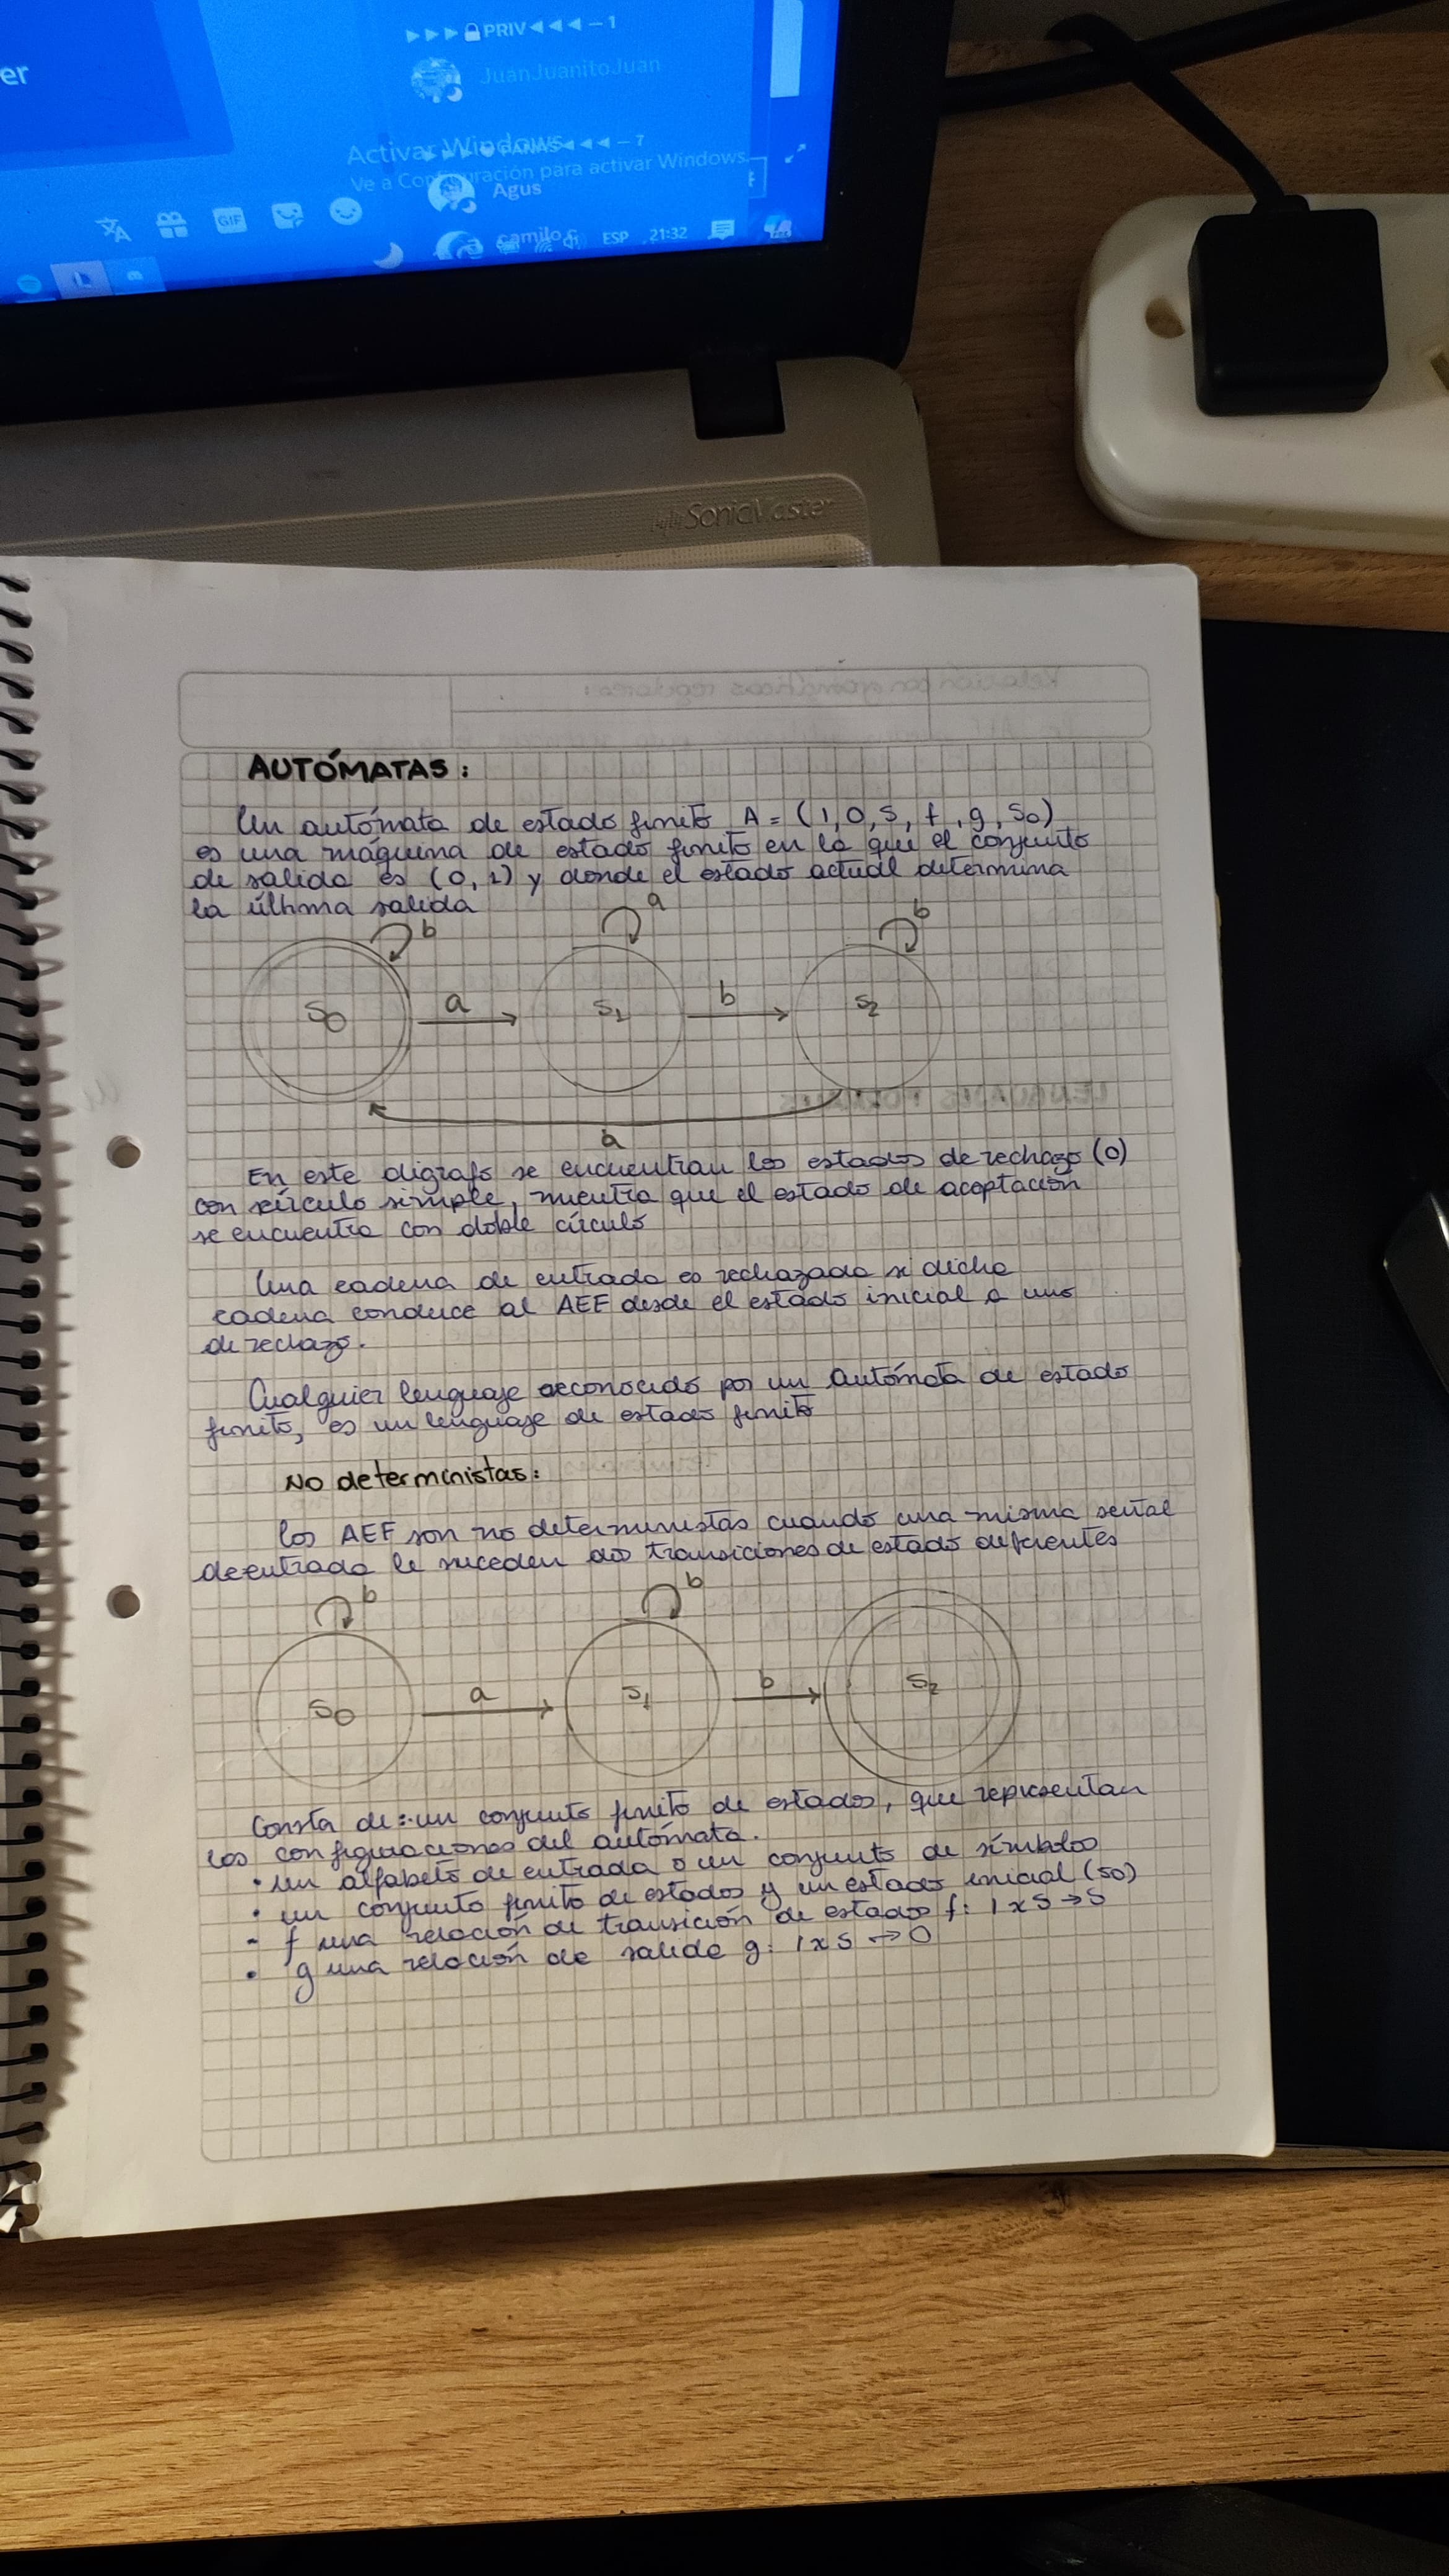 er
PRIV — 1
JuanJuanitoJuan
Activar Windows
PANAS — 7
Ve a Configuración para activar Windows.
Agus
GIF
camilo.c
ESP 21:32
SonicMaster
AUTÓMATAS:
Un autómata de estado finito A = (I, O, S, f, g, S0)
es una máquina de estado finito en la que el conjunto
de salida es (0, 1) y donde el estado actual determina
la última salida
b a b
S0 a S1 b S2
a
En este digrafo se encuentran los estados de rechazo (0)
con círculo simple, mientra que el estado de aceptación
se encuentra con doble círculo
Una cadena de entrada es rechazada si dicha
cadena conduce al AEF desde el estado inicial a uno
de rechazo.
Cualquier lenguaje reconocido por un autómata de estado
finito, es un lenguaje de estado finito
No deterministas:
Los AEF son no deterministas cuando una misma señal
de entrada le suceden dos transiciones de estado diferentes
b b
S0 a S1 b S2
Consta de: · un conjunto finito de estados, que representan
las configuraciones del autómata.
· un alfabeto de entrada o un conjunto de símbolos
· un conjunto finito de estados y un estado inicial (S0)
- f una relación de transición de estados f: I x S → S
· g una relación de salida g: I x S → O